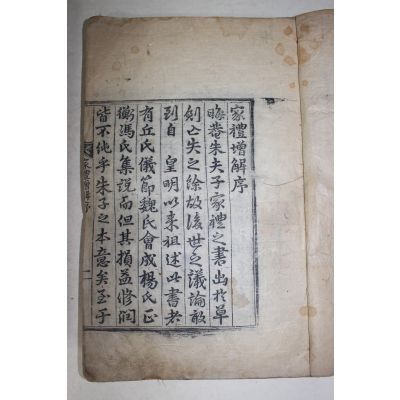 家禮增解序
晦菴朱夫子家禮之書出於草
剏亡失之餘故後世之議論敢
到自 皇明以来祖述此書者
有丘氏儀節魏氏會成楊氏正
衡馮氏集說而但其損益修潤
皆不純乎朱子之本意矣至于
家禮增解序
一